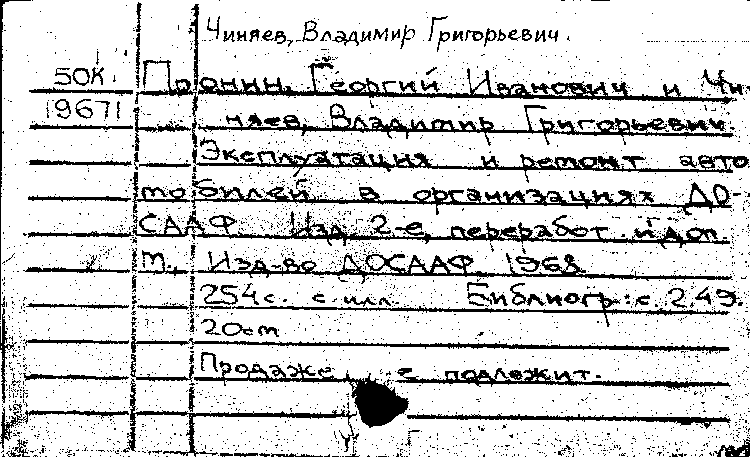 Чиняев, Владимир Григорьевич.
50К. Пронин, Георгий Иванович и Чи-
19671 няев, Владимир Григорьевич.
Эксплуатация и ремонт авто
мобилей в организациях ДО-
СААФ. Изд. 2-е, переработ. и доп.
М., Изд-во ДОСААФ, 1968
254с. с илл. Библиогр.: с. 249.
20см
Продаже не подлежит.